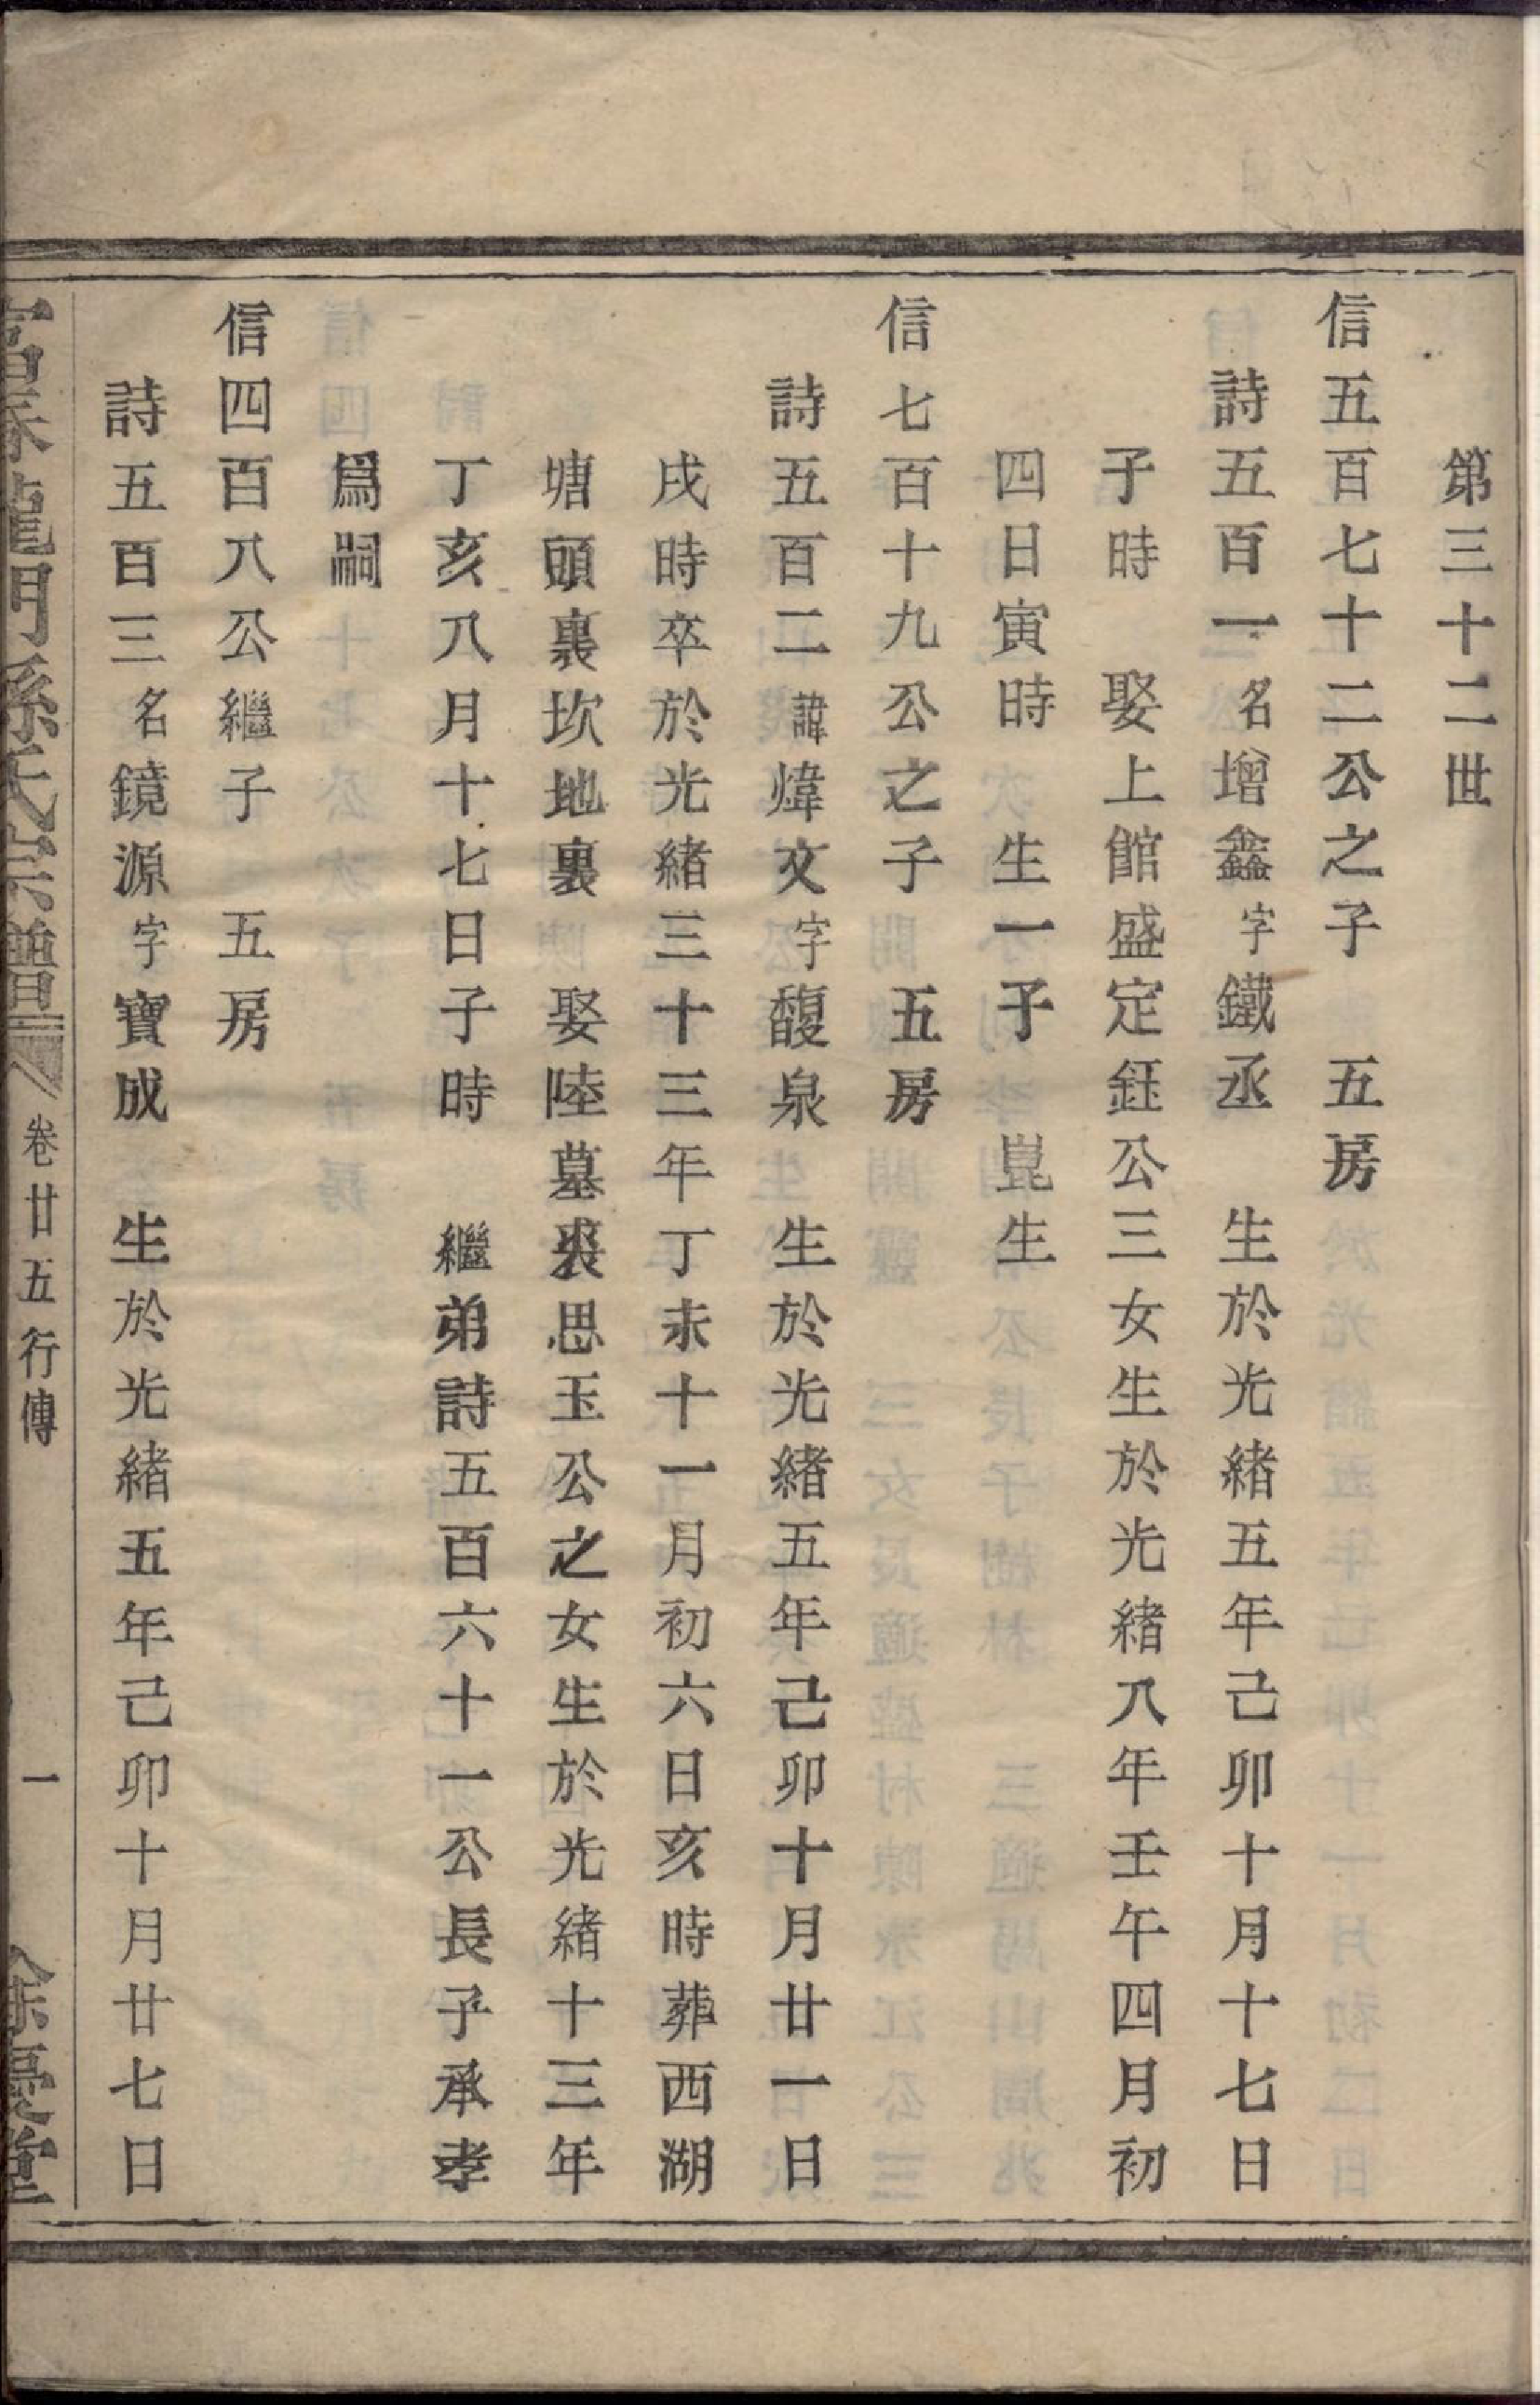 第三十二世
信五百七十二公之子　五房
詩五百一名增鑫字鐵丞　生於光緒五年己卯十月十七日
子時　娶上館盛定鈺公三女生於光緒八年壬午四月初
四日寅時　生一子　崑生
信七百十九公之子　五房
詩五百二諱煒文字馥泉　生於光緒五年己卯十月廿一日
戌時卒於光緒三十三年丁未十一月初六日亥時葬西湖
塘頭裏坎地裏　娶陸墓裘思玉公之女生於光緒十三年
丁亥八月十七日子時　繼弟詩五百六十一公長子承孝
爲嗣
信四百八公繼子　五房
詩五百三名鏡源字寶成　生於光緒五年己卯十月廿七日
富春龍門孫氏宗譜　卷廿五行傳　一　餘慶堂